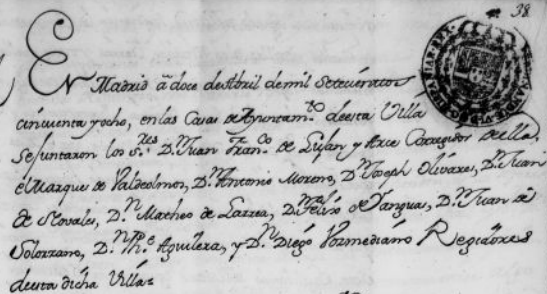 38
En Madrid â doce de Abril de mil Setecientos
cinquenta y ocho, en las Casas de Ayuntam.to de esta Villa
se juntaron los S.res D.n Juan Fran.co de Luján y Arce Corregidor de ella,
el Marques de Valdeolmos, D.n Antonio Moreno, D.n Joseph Olivares, D.n Juan
de Novales, D.n Matheo de Larrea, D.n Pedro de Yanguas, D.n Juan de
Solorzano, D.n Ph.e Aguilera, y D.n Diego Vormediano Regidores
de esta dicha Villa=